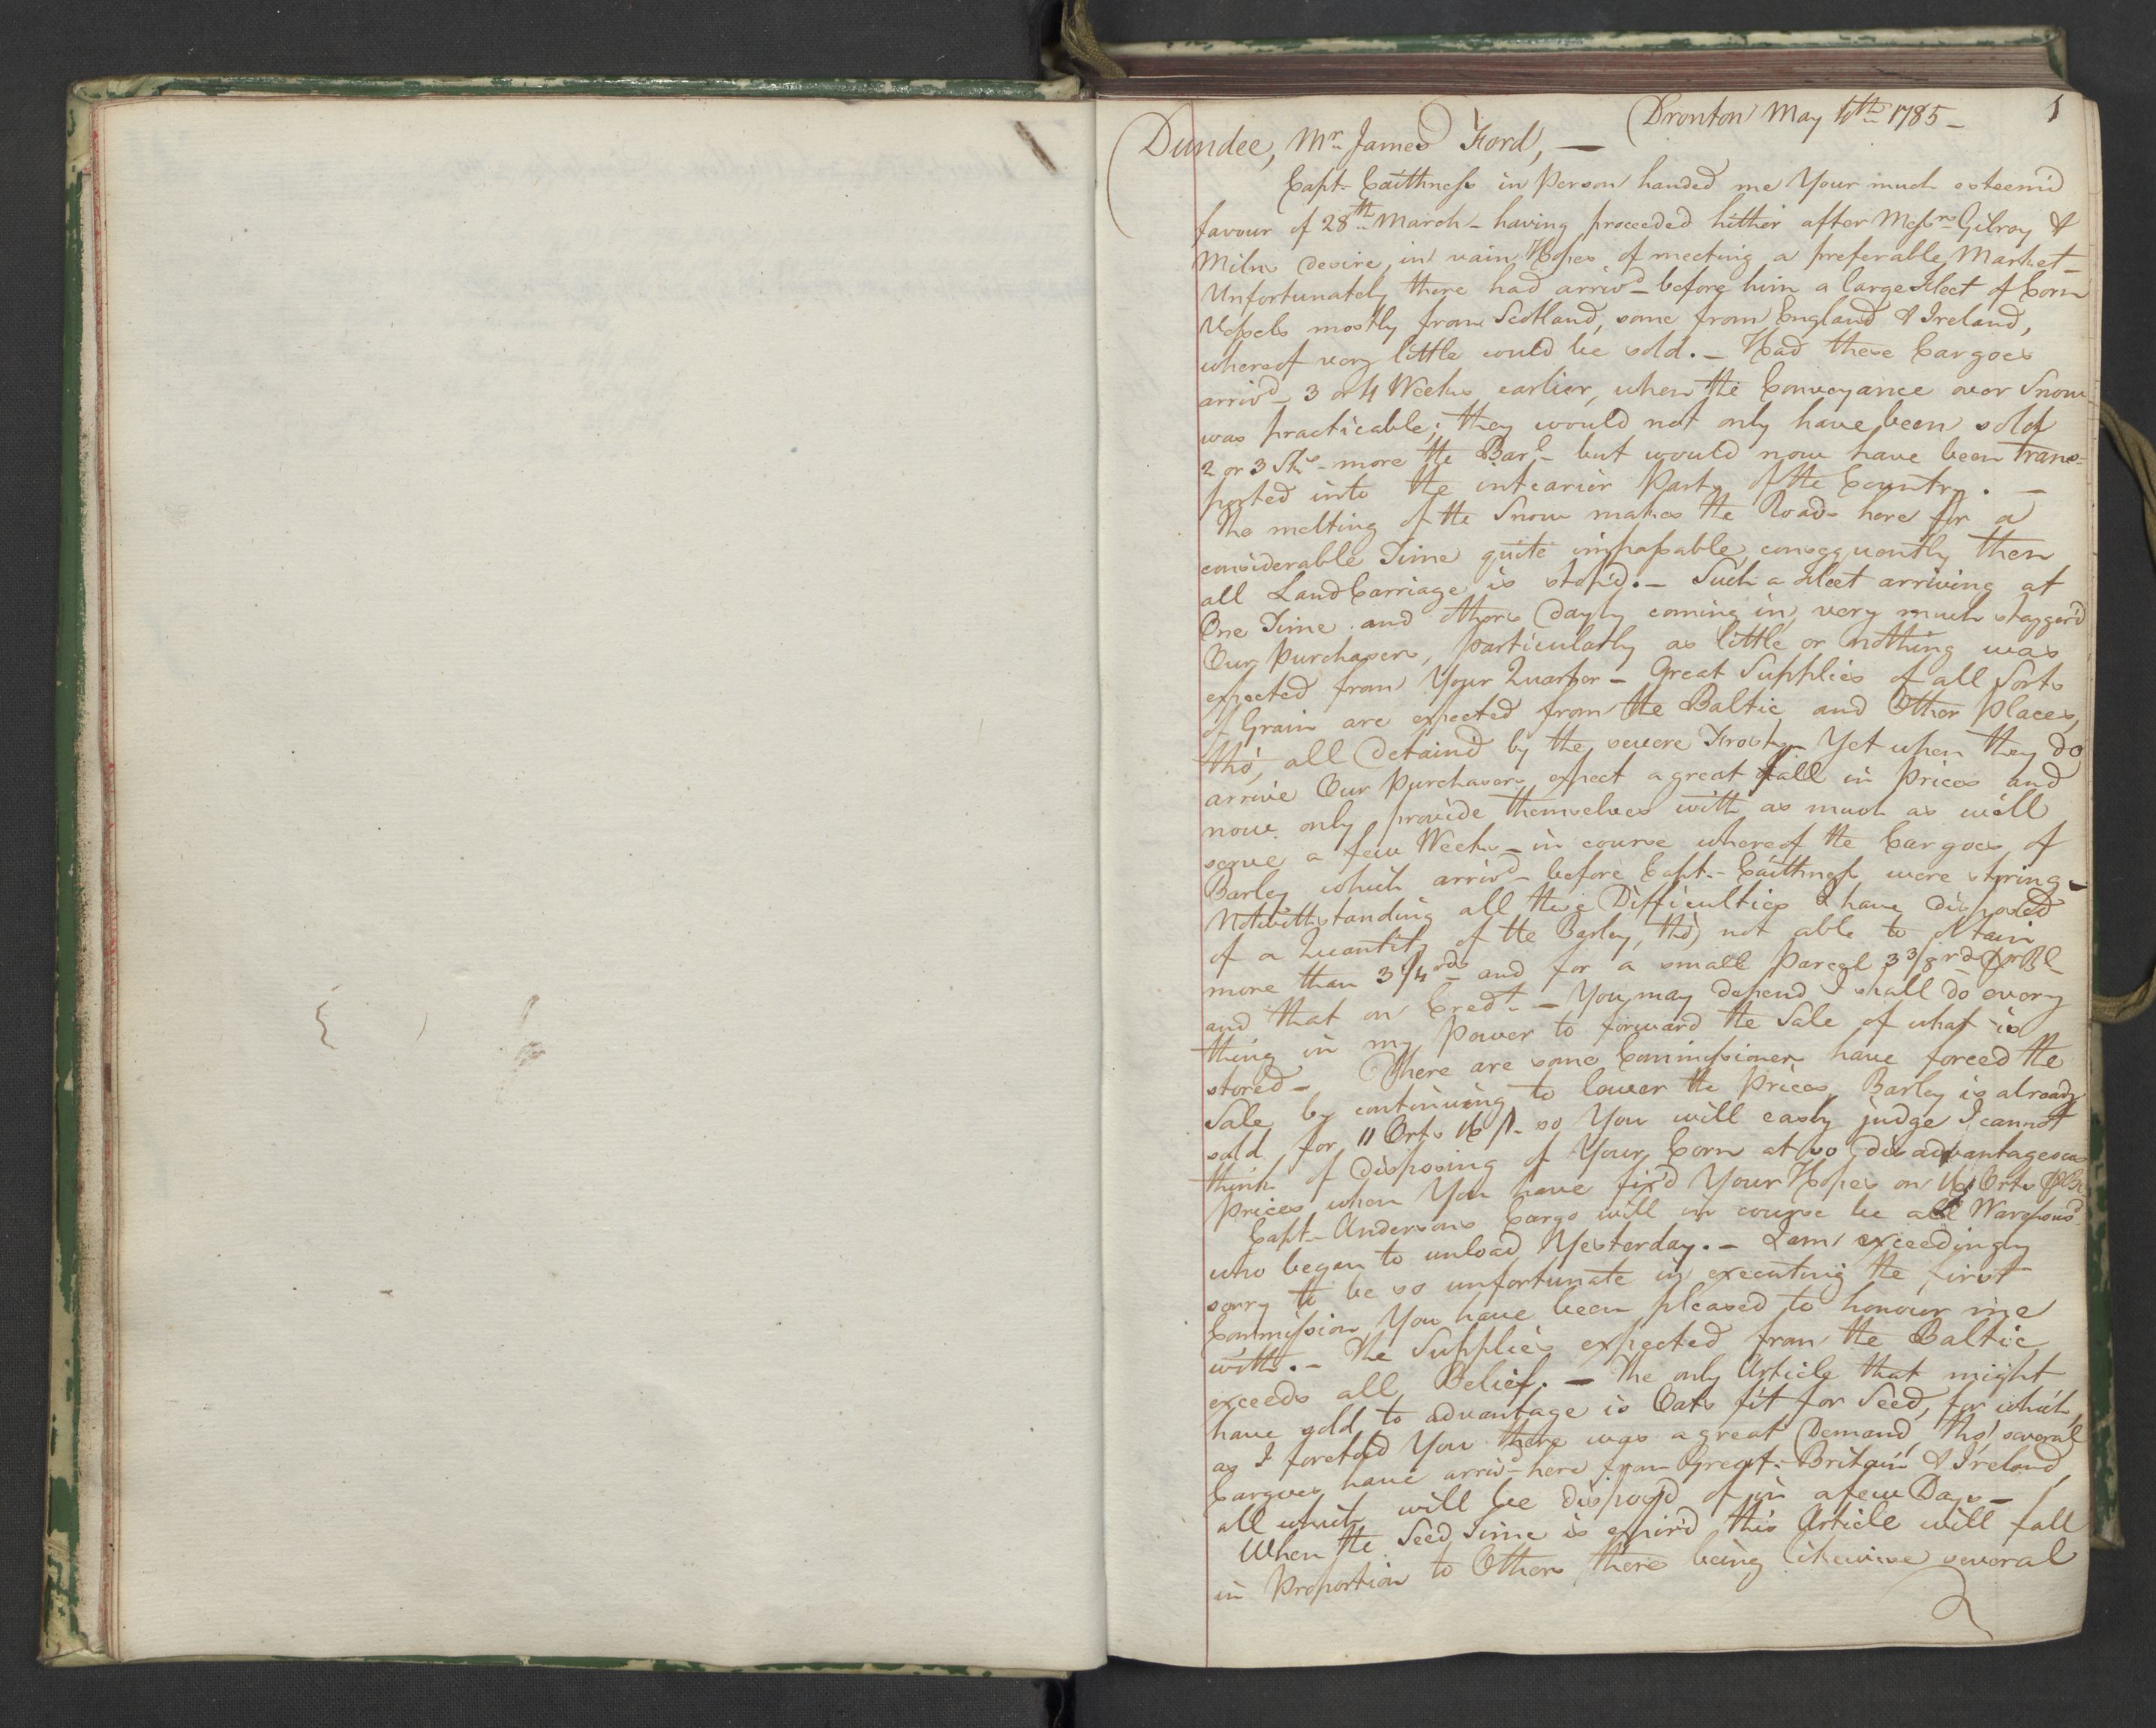 1
Dronton May 10th 1785 –
Dundee, Mr James Ford, —
Capt. Caithness in Person handed me Your much esteem'd
favour of 28th March – having proceeded hither after Messrs Gilroy &
Milns desire, in vain Hopes of meeting a preferable Market –
Unfortunately there had arriv'd before him a large Fleet of Corn
Vessels mostly from Scotland, some from England & Ireland,
whereof very little could be sold. – Had these Cargoes
arriv'd 3 or 4 Weeks earlier, when the Conveyance over Snow
was practicable; they would not only have been sold
2 or 3 Shs – more the Barl – but would now have been Trans-
ported into the intearior Parts of the Country. –
The melting of the Snow makes the Roads here for a
considerable Time quite impassable, consequently then
all Land Carriage is stop'd. – Such a Fleet arriving at
One Time and others dayly coming in, very much stagger'd
Our Purchasers, particularly as little or nothing was
expected from Your Quarter – Great Supplies of all Sorts
of Grain are expected from the Baltic and Other Places,
tho' all detain'd by the severe Frosty – Yet when they do
arrive Our Purchasers expect a great fall in Prices and
now only provide themselves with as much as will
serve a few Weeks – in course whereof the Cargoes of
Barley which arriv'd before Capt. Caithness were storing –
Notwithstanding all these Difficulties I have disposed
of a Quantity of the Barley, tho' not able to obtain
more than 3 1/4 rds and for a small Parcel 3 3/8 rds pr Bl
and that on Credt. – You may depend I shall do every
thing in my Power to forward the Sale of what is
stored – There are some Commissioners have forced the
Sale by continuing to lower the Prices, Barley is already
sold for 11 Orts 16 s – so You will easly judge I cannot
think of disposing of Your Corn at so disadvantageous
Prices when You have fix'd Your Hopes on 16 Orts pBl
Capt. Andersons Cargo will in course be all Warehous'd
who began to unload Yesterday. – I am exceedingly
sorry to be so unfortunate in executing the first
Commission You have been pleased to honour me
with. – The Supplies expected from the Baltic
exceeds all Belief. – The only Article that might
have sold to advantage is Oats fit for Seed, for which,
as I foretold You there was a great Demand, tho' several
Cargoes have arriv'd here from Great-Britain & Ireland,
all which will be dispos'd of in a few Days –
When the Seed Time is expir'd this Article will fall
in Proportion to Others there being likewise several